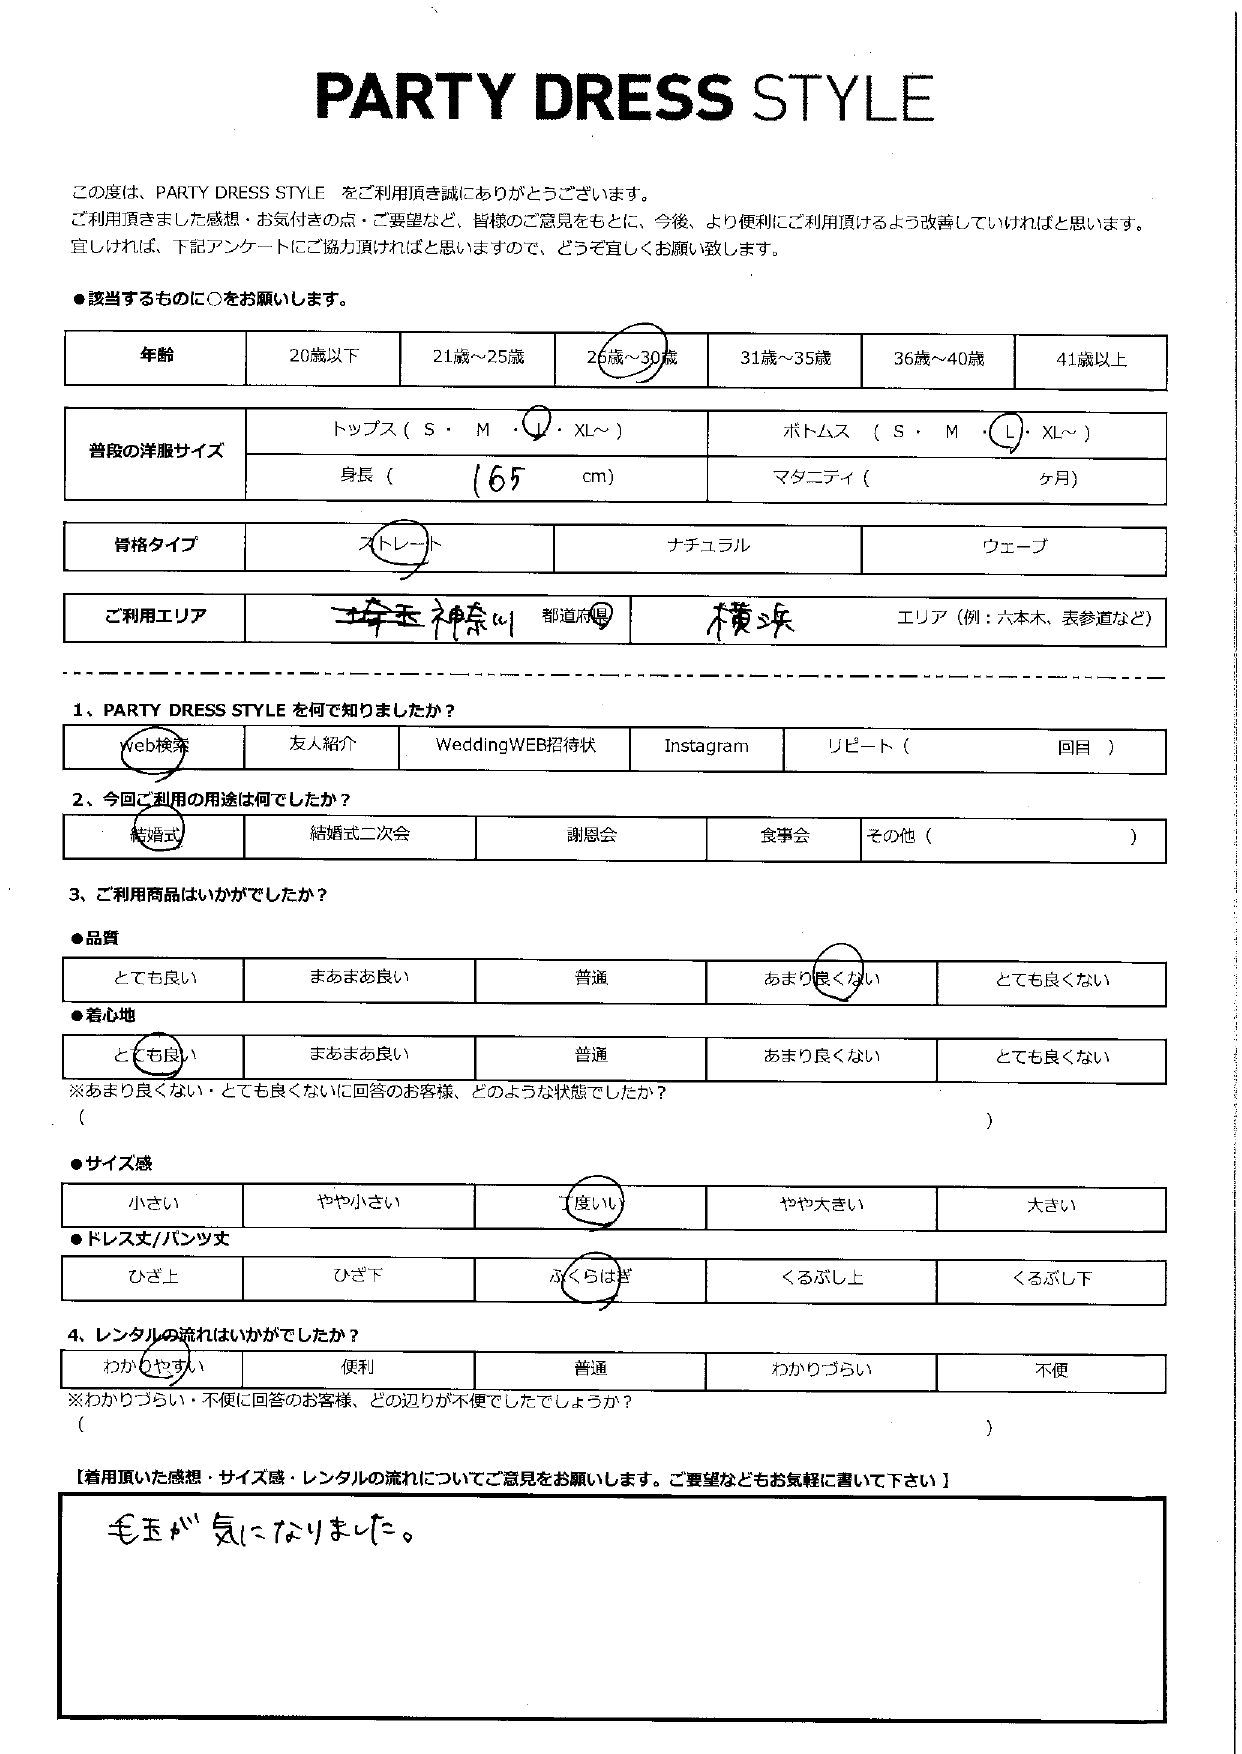 PARTY DRESS STYLE
この度は、PARTY DRESS STYLE をご利用頂き誠にありがとうございます。
ご利用頂きました感想・お気付きの点・ご要望など、皆様のご意見をもとに、今後、より便利にご利用頂けるよう改善していければと思います。
宜しければ、下記アンケートにご協力頂ければと思いますので、どうぞ宜しくお願い致します。
●該当するものに○をお願いします。
年齢 20歳以下 21歳～25歳 26歳～30歳 31歳～35歳 36歳～40歳 41歳以上
普段の洋服サイズ トップス ( S ・ M ・ L ・ XL～ ) ボトムス ( S ・ M ・ L ・ XL～ )
身長 ( 165 cm) マタニティ ( ヶ月)
骨格タイプ ストレート ナチュラル ウェーブ
ご利用エリア 埼玉 神奈川 都道府県 横浜 エリア（例：六本木、表参道など）
1、PARTY DRESS STYLE を何で知りましたか？
Web検索 友人紹介 WeddingWEB招待状 Instagram リピート ( 回目 )
2、今回ご利用の用途は何でしたか？
結婚式 結婚式二次会 謝恩会 食事会 その他 ( )
3、ご利用商品はいかがでしたか？
●品質
とても良い まあまあ良い 普通 あまり良くない とても良くない
●着心地
とても良い まあまあ良い 普通 あまり良くない とても良くない
※あまり良くない・とても良くないに回答のお客様、どのような状態でしたか？
( )
●サイズ感
小さい やや小さい 丁度いい やや大きい 大きい
●ドレス丈/パンツ丈
ひざ上 ひざ下 ふくらはぎ くるぶし上 くるぶし下
4、レンタルの流れはいかがでしたか？
わかりやすい 便利 普通 わかりづらい 不便
※わかりづらい・不便に回答のお客様、どの辺りが不便でしたでしょうか？
( )
【着用頂いた感想・サイズ感・レンタルの流れについてご意見をお願いします。ご要望などもお気軽に書いて下さい 】
毛玉が気になりました。